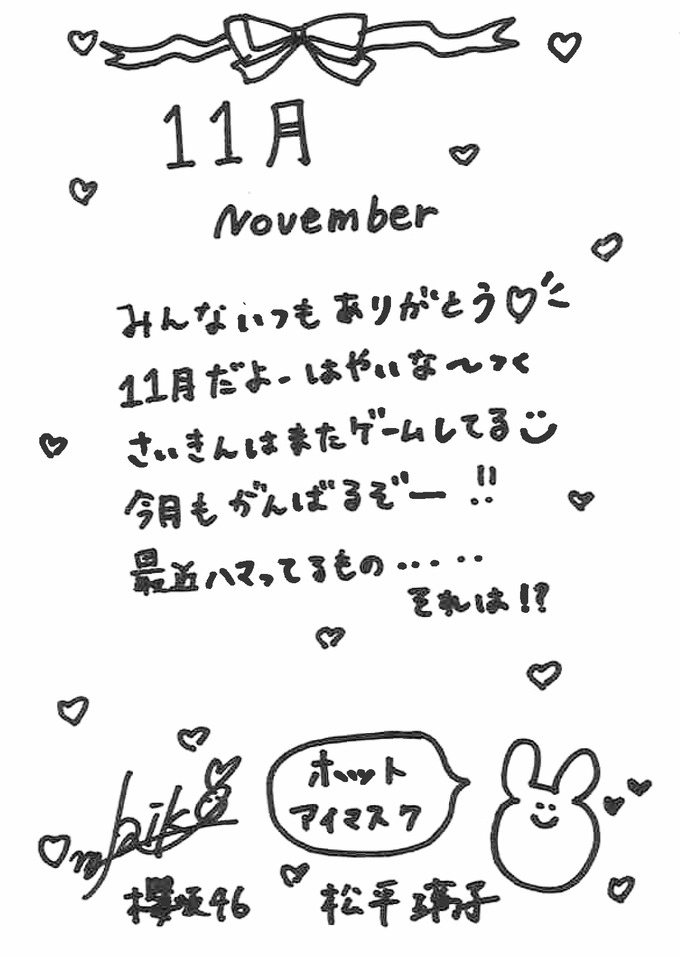 11月
November
みんないつもありがとう♡
11月だよーはやいな〜つく
さいきんはまたゲームしてる
今月もがんばるぞー!!
最近ハマってるもの・・・・・
それは!?
ホット
アイマスク
欅坂46 松平璃子